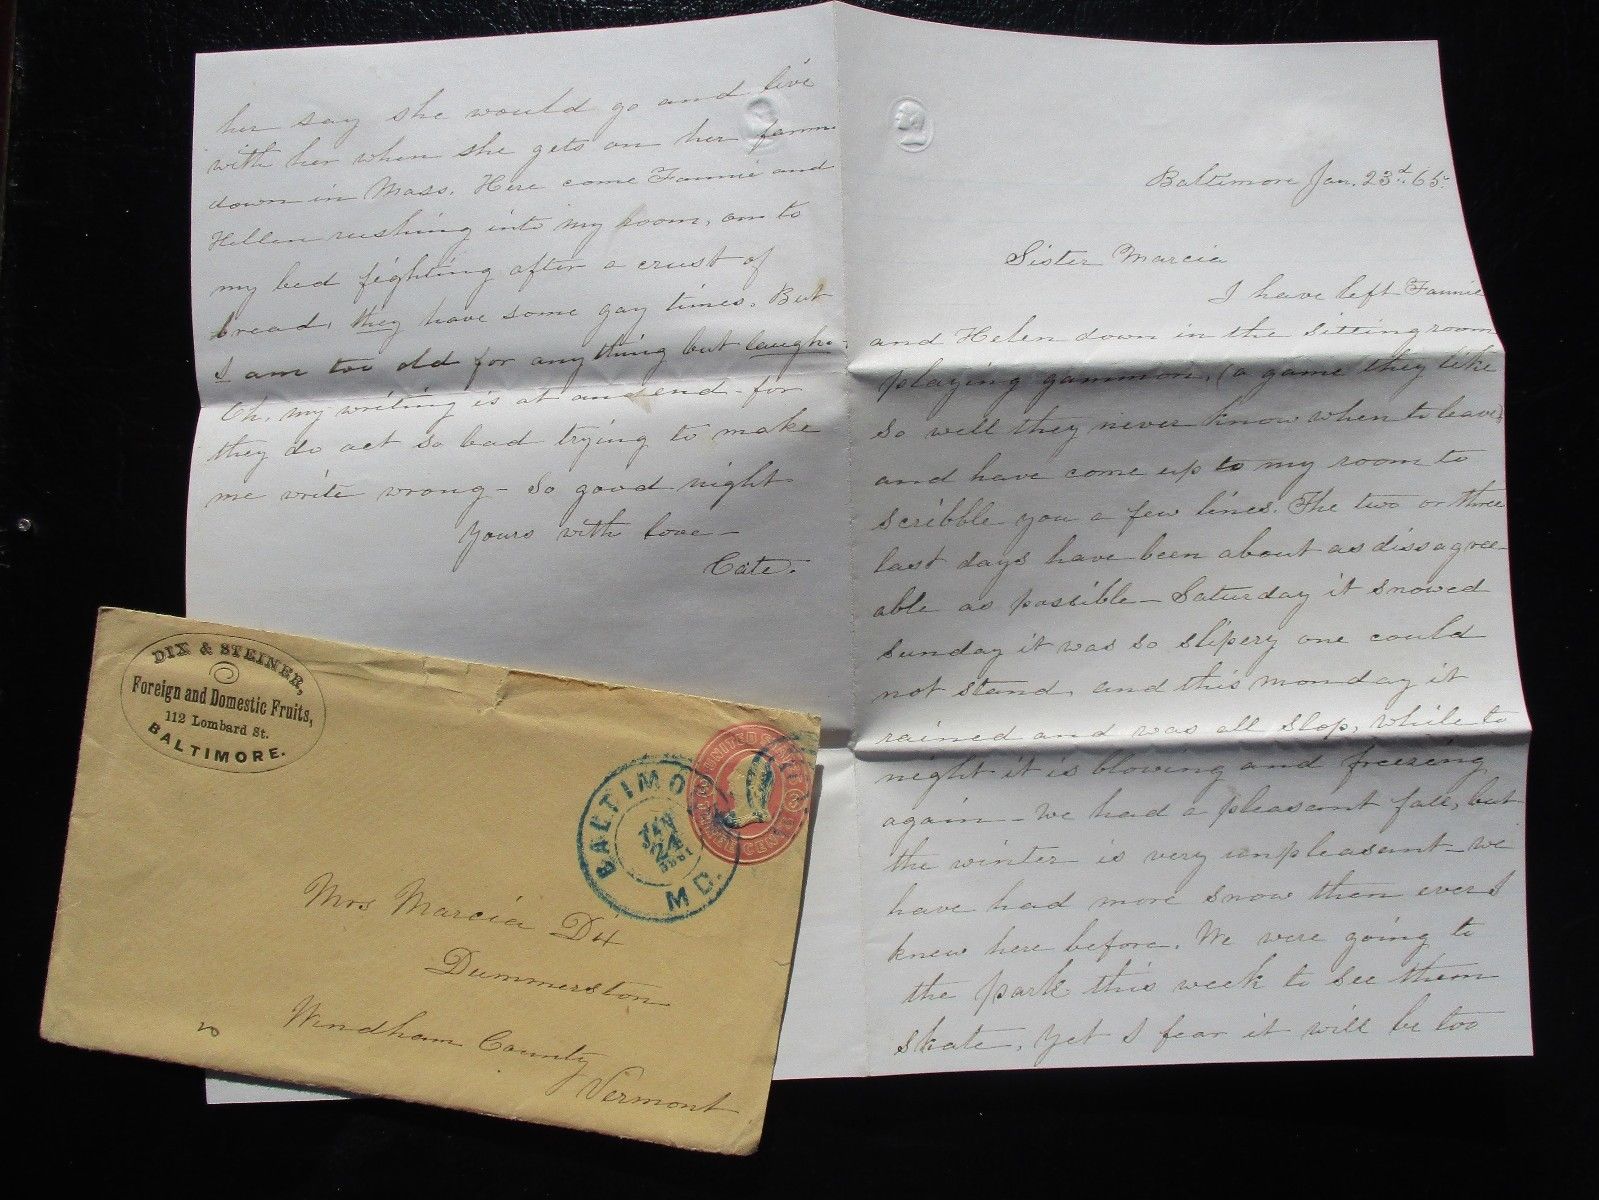 Baltimore Jan. 23d. 65.
Sister Marcia
I have left Fannie
and Helen down in the sittingroom
playing gammon, (a game they like
so well they never know when to leave)
and have come up to my room to
scribble you a few lines. The two or three
last days have been about as dissagree-
able as possible - Saturday it snowed
sunday it was so slipery one could
not stand, and this monday it
rained and was all slop, while to
night it is blowing and freezing
again - We had a pleasant fall, but
the winter is very unpleasant - we
have had more snow then ever I
knew here before. We were going to
the park this week to see them
skate, yet I fear it will be too
her say she would go and live
with her when she gets on her farm
down in Mass. Here come Fannie and
Hellen rushing into my room, on to
my bed fighting after a crust of
bread, they have some gay times. But
I am too old for any thing but laugh.
Oh, my writing is at an end - for
they do act so bad trying to make
me write wrong - So good night
Yours with love -
Cate.
DIX & STEINER,
Foreign and Domestic Fruits,
112 Lombard St.
BALTIMORE.
BALTIMO
MD.
JAN
24
1865
UNITED STATES
THREE CENTS
3
3
Mrs Marcia Dix
Dummerston
Windham County
Vermont